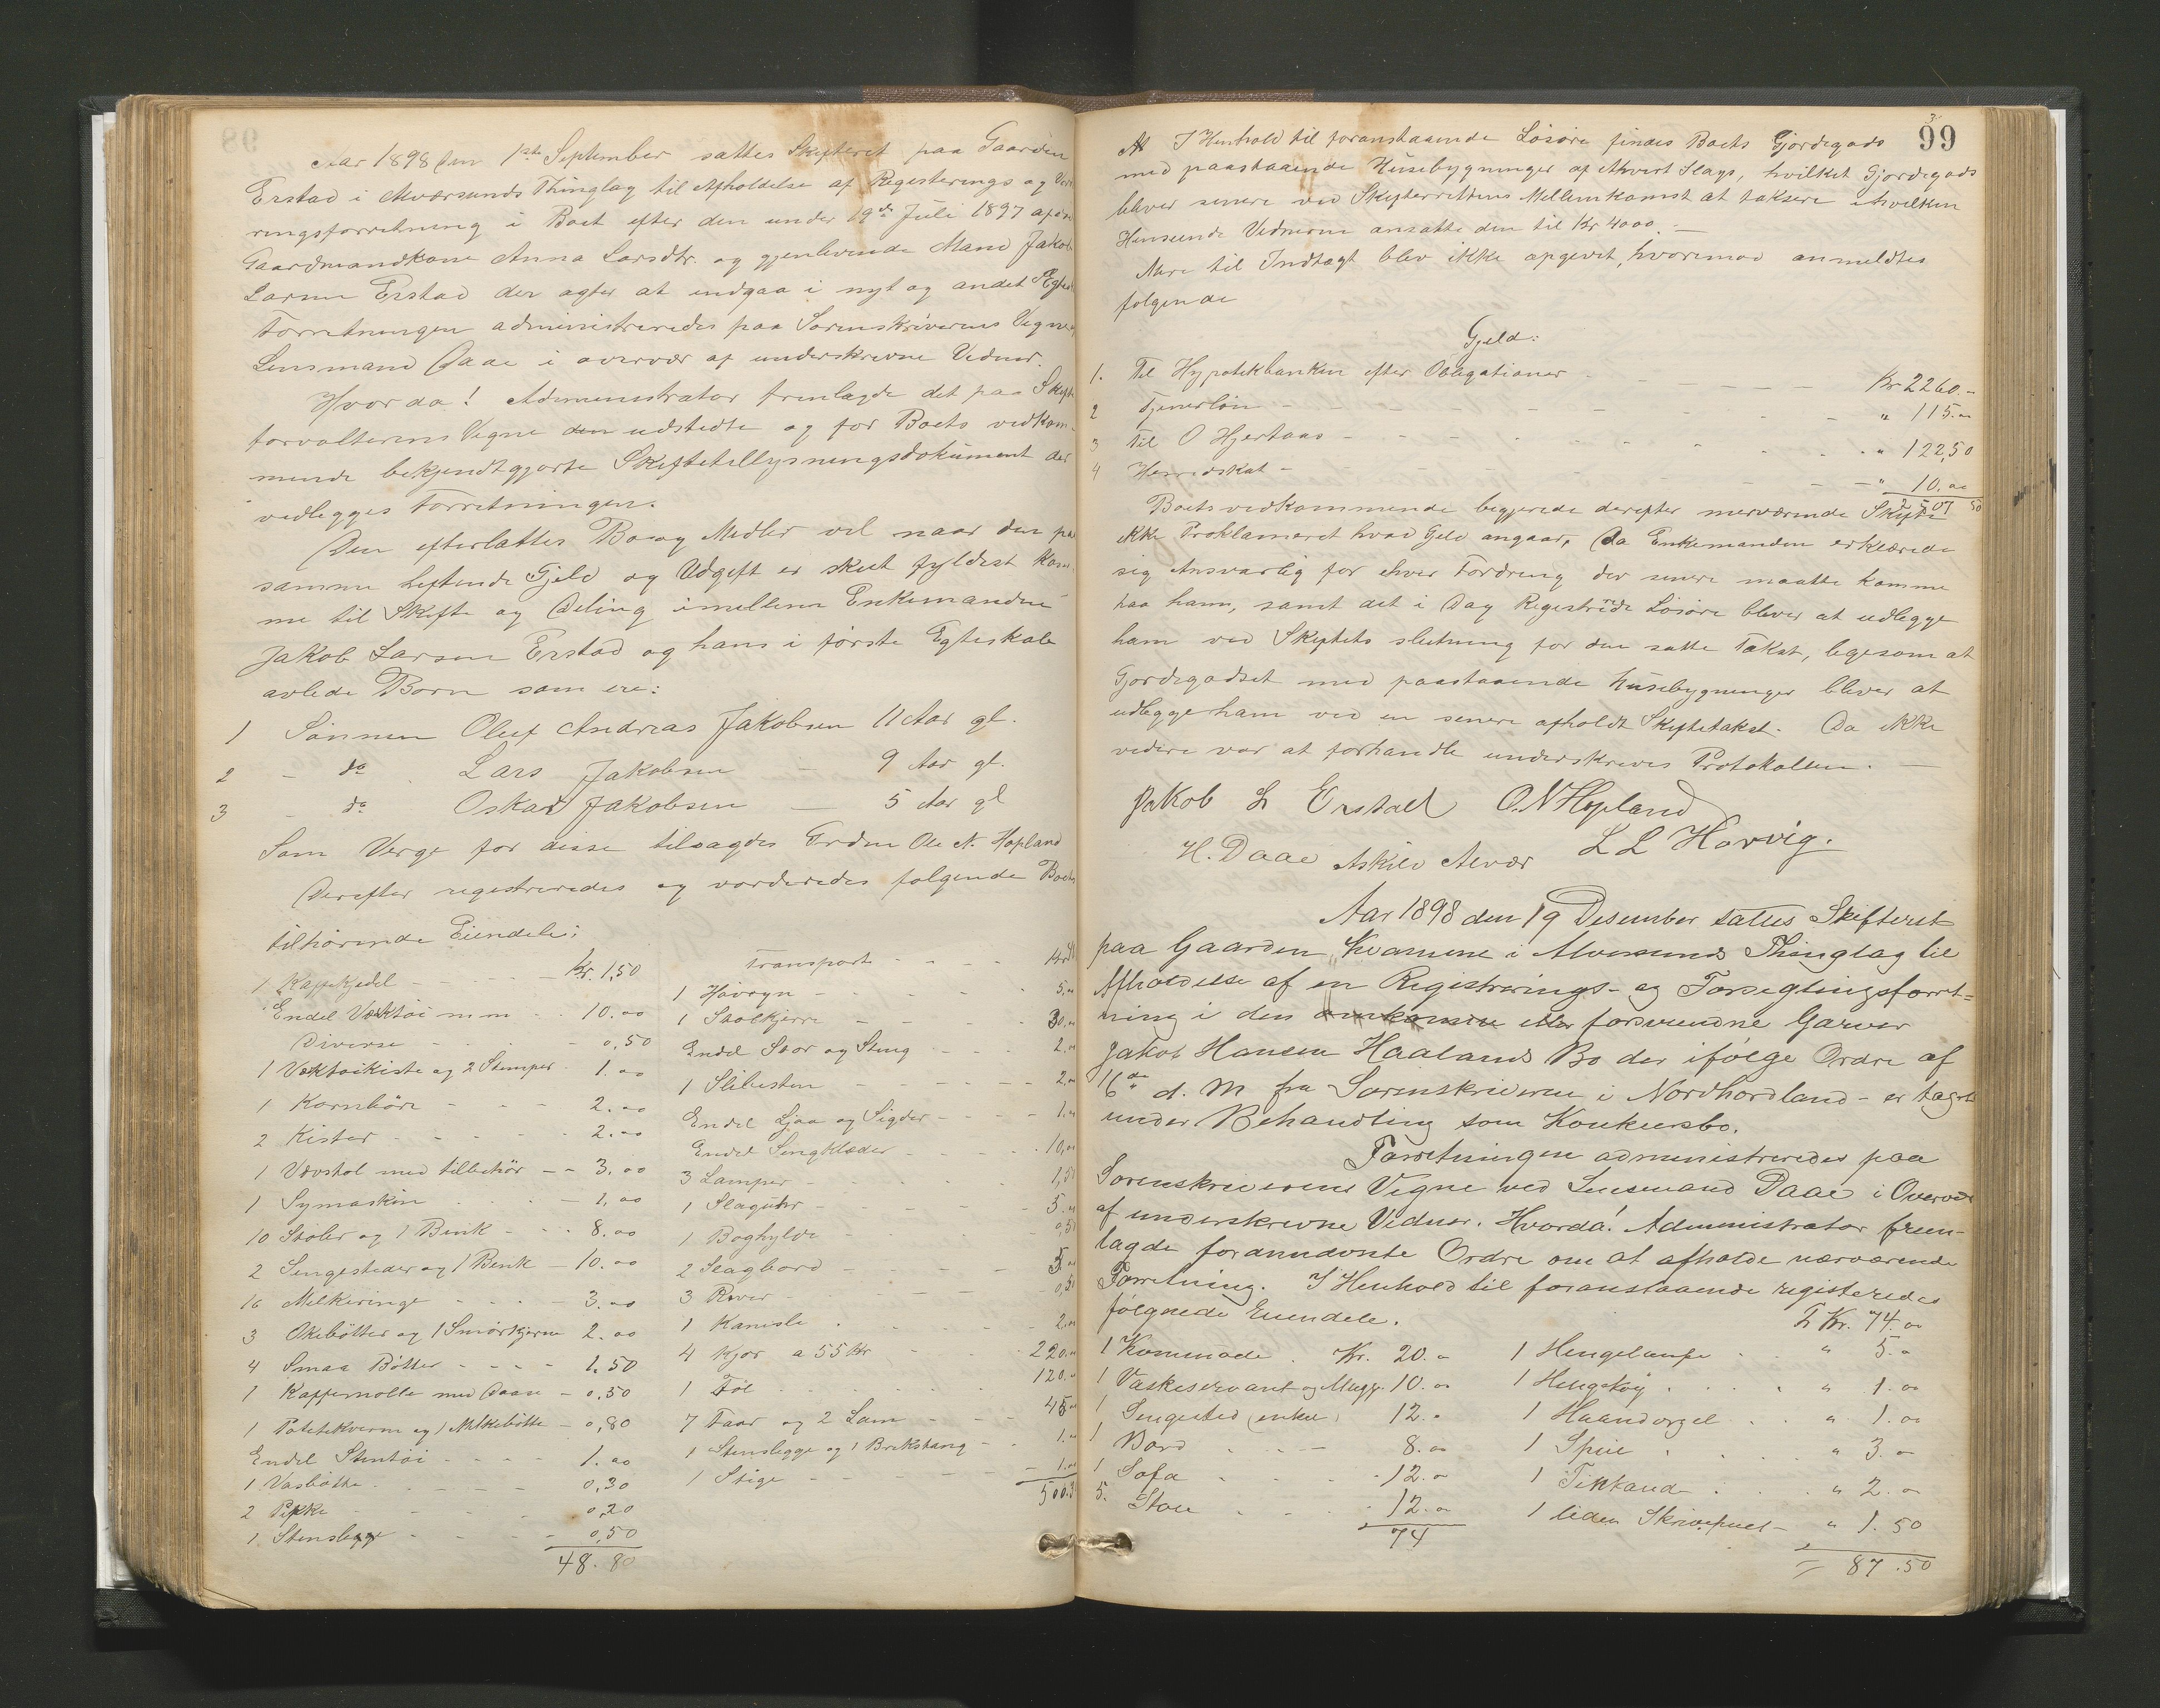 Aar 1898 den 1ste September sattes Skifteret paa Gaarden
Erstad i Alværsunds Thinglag til Afholdelse af Registerings og Vær
ringsforretning i Boet efter den under 19de Juli 1897 afdø
Gaardmandkone Anna Larsdtr. og gjenlevende Mand Jakob
Larsen Erstad der agter at indgaa i nyt og andet Egtes
Forretningen administreredes paa Sorenskriverens Vegne
Lensmand Daae i overvær af underskrevne Vidner.
Hvorda! Administrator fremlagde det paa Skifte
forvalterens Vegne den udstedte og for Boets vedkom-
mende bekjendtgjorte Skiftetillysningsdokument der
vedlegges Forretningen.
Den efterlattes Bo og Midler vil naar den paa
samme heftende Gjeld og Udgift er skeet fyldest kom
me til Skifte og Deling imellem Enkemanden
Jakob Larsen Erstad og hans i første Egteskab
avlede Børn som ere:
1 Sønnen Oluf Andreas Jakobsen 11 Aar gl.
2 - do. Lars Jakobsen - 9 Aar gl.
3 - do Oskar Jakobsen - 5 Aar gl
Som Verge for disse tilsagdes Ole N. Hopland
Derefter registreredes og vorderedes følgende Boets
tilhørende Eiendele:
1 Kaffekjedel - - - Kr. 1,50
Endel Værktøi m m - - 10.00
Diverse - - - 0,50
1 Væktøikiste og 2 Stamper - 1.00
1 Kornbøre - - - 2.00
2 Kister - - - 2.00
1 Vævstol med tilbehør - - 3.00
1 Symaskin - 1,00
10 Stoler og 1 Benk - - 8.00
2 Sengesteder og 1 Benk - 10.00
16 Melkeringe - - - 3.00
3 Økebøtter og 1 Smørkjerne 2.00
4 Smaa Bøtter - - - 1.50
1 Kaffemølle med Daase - 0,50
1 Potetekvern og 1 Melkebøtte - 0,80
Endel Stentøi - - - 1.00
1 Vasbøtte - - - 0,30
2 - - 0,20
1 Stenslegge - - - 0,50
48.80
Transport - - - -
1 Høvogn - - - 5.00
1 Stolkjerre - - - 30.00
Endel Staar og Steng - - 2.00
1 Slibesten - - - 2.00
Endel Ljaa og Sigder - - - 1.00
Endel Sengklæder - - - 10,00
3 Lamper - - - 1,50
1 Slaguhr - - - 5.00
1 Boghylde - - - 0,5
2 Slagbord - - - 5.00
3 - - - 0,50
1 - - - 2.00
4 Kjør a 55 Kr - - - 220.00
1 Føl - - - 120.00
7 Faar og 2 Lam - - 45.00
1 Stenslegge og 1 Brekstang - - 1.00
1 Stige - - - 1.00
500.3
99
At I Henhold til foranstaaende Løsøre findes Boets Gjordegods
med paastaaende Husebygninger af ethvert Slags, hvilket Gjordegods
blever senere ved Skifterrettens Mellemkomst at taksere i hvilken
Henseende Vidnerne ansatte den til Kr 4000.—
Mere til Indtægt blev ikke opgevet, hvorimod anmeldtes
følgende
Gjeld:
1. Til Hypotekbanken efter Obligationer - - - Kr 2260.-
2 Tjenerløn - - - - " 115.00
3 Til O Hjertaas - - - - " 122,50
4 Heredskat - - - - " 10.00
2507 50
Boets vedkommende begjerede derefter nerværende Skifte
ikke Proklameret hvad Gjeld angaar, Da Enkemanden erklærede
sig Ansvarlig for ehver Fordring der senere maatte komme
paa ham, samt det i Dag Registrerede Løsøre blever at udlegge
ham ved Skiftets slutning for den satte Takst, legesom at
Gjordegodset med paastaaende husebygninger blever at
udlegge ham ved en senere afholdt Skiftetakst. Da ikke
videre var at forhandle underskreves Protokollen. —
Jakob L Erstad O.N Hopland
H. Daae Askild Alvær L L Horvig.
Aar 1898 den 19 Desember sattes Skifteret
paa Gaarden Kvamme i Alversunds Thinglag til
Afholdelse af en Registrerings- og Forseglingsforret=
ning i den omkomne eller forsvundne Garver
Jakob Hansen Haalands Bo der ifølge Ordre af
16de d. M fra Sorenskriveren i Nordhordland - er taget
under Behandling som Konkursbo.
Forretningen administreredes paa
Sorenskriverens Vegne ved Lensmand Daae i Overvær
af underskrevne Vidner. Hvorda! Administrator frem-
lagde forannævnte Ordre om at afholde nærværende
Forretning. I Henhold til foranstaaende registeredes
følgnede Eiendele.
1 Kommode . Kr. 20.00
1 Vaskeservant og Mugge. 10.00
1 Sengested (enkel) 12.00
1 Bord - - - 8.00
1 Sofa - - - 12.00
5. Stole - - - 12.00
74
T Kr. 74.00
1 Hengelampe - " 5.00
1 Hengekøy . . . " 1.00
1 Haandorgel . . " 1.00
1 Speil . . " 3.00
1 . . . " 2.00
1 liden Skrivepult - " 1.50
= 87.50